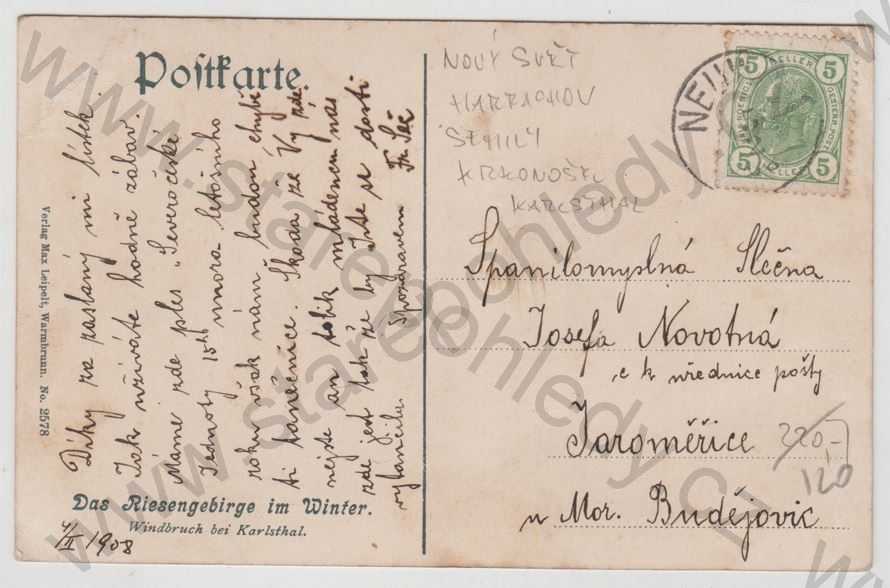 Postkarte
Díky za zaslaný mi lístek.
Jak užíváte hodně zábav.
Máme zde ples „Severočeské
Jednoty 15ho února letošního
roku však nám budou chybě-
ti tanečnice. Škoda že Vy zde
nejste an tolik mládenců nás
zde jest tak že by jste se dosti
vytančila. S pozdravem
Das Riesengebirge im Winter.
Windbruch bei Karlsthal.
4/II 1908
Verlag Max Leipelt, Warmbrunn. No. 2578
NOVÝ SVĚT
HARRACHOV
KRKONOŠE
KARLSTHAL
NEU
5 HELLER 5
5 HELLER 5
Spanilomyslná Slečna
Josefa Novotná
c k úřednice pošty
Jaroměřice
u Mor. Budějovic
220,-
120
www.staropohledy.cz
www.staropohledy.cz